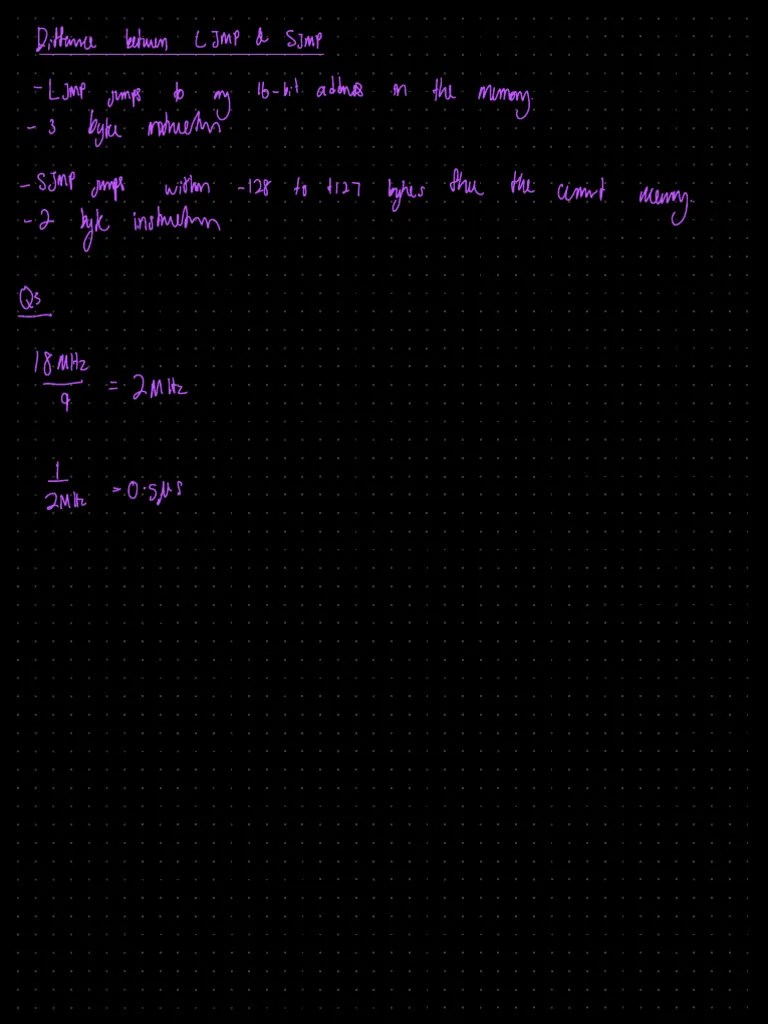 Difference between LJMP & SJMP
- LJMP jumps to any 16-bit address in the memory.
- 3 byte instruction
- SJMP jumps within -128 to +127 bytes the the current memory.
- 2 byte instruction
Qs
18MHz
9
= 2MHz
1
2MHz
= 0.5μs